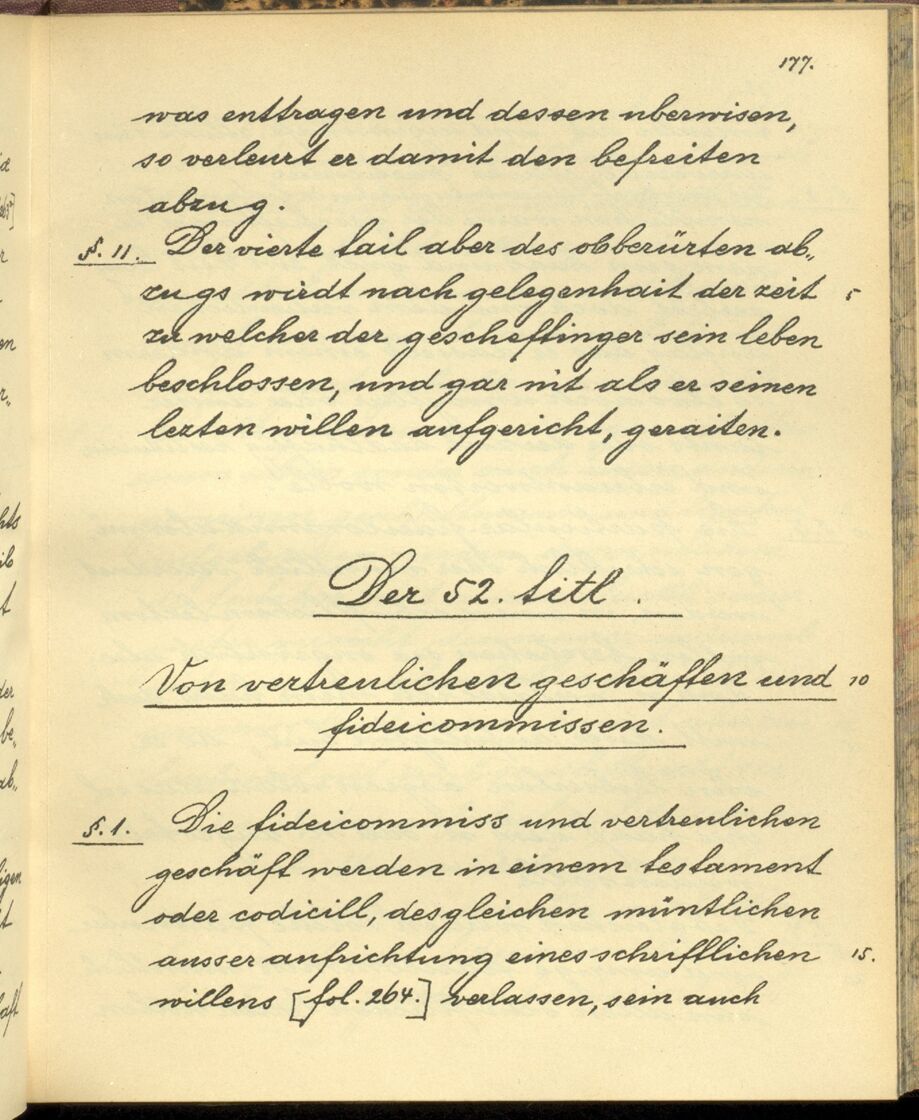 177.
was enttragen und dessen uberwisen,
so verleurt er damit den befreiten
abzug.
§. 11. Der vierte tail aber des obberürten ab„
zugs wirdt nach gelegenhait der zeit 5
zu welcher der gescheftinger sein leben
beschlossen, und gar nit als er seinen
lezten willen aufgericht, geraiten.
Der 52. titl.
Von vertreulichen geschäften und 10
fideicommissen.
§. 1. Die fideicommiss und vertreulichen
geschäft werden in einem testament
oder codicill, desgleichen müntlichen
ausser aufrichtung eines schriftlichen 15.
willens [fol. 264.] verlassen, sein auch